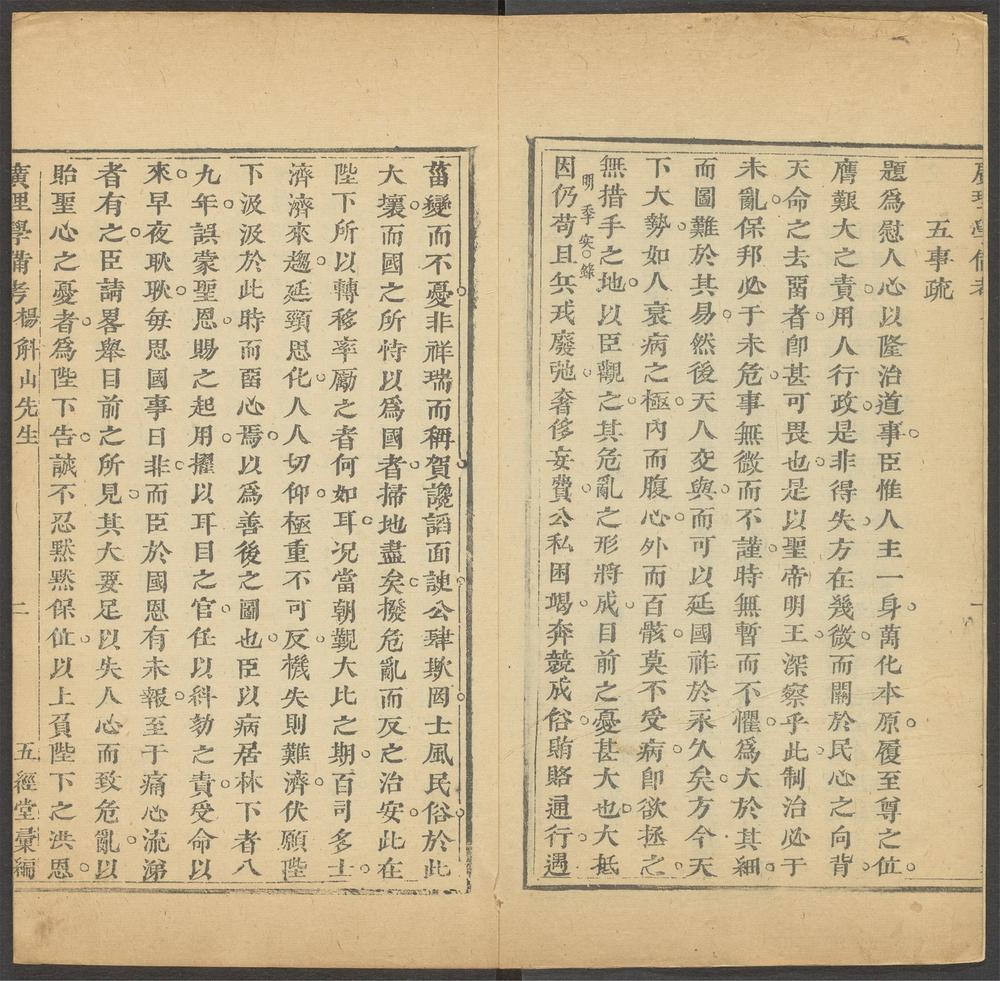 五事疏
題爲慰人心以隆治道事臣惟人主一身萬化本原履至尊之位
膺艱大之責用人行政是非得失方在幾微而關於民心之向背
天命之去畱者卽甚可畏也是以聖帝明王深察乎此制治必于
未亂保邦必于未危事無微而不謹時無暫而不懼爲大於其細
而圖難於其易然後天人交與而可以延國祚於永久矣方今天
下大勢如人衰病之極內而腹心外而百骸莫不受病卽欲拯之
無措手之地以臣觀之其危亂之形將成目前之憂甚大也大抵
明季實錄
因仍苟且兵戎廢弛奢侈妄費公私困竭奔競成俗賄賂通行遇
菑變而不憂非祥瑞而稱賀讒謟面諛公肆欺罔士風民俗於此
大壞而國之所恃以爲國者掃地盡矣撥危亂而反之治安此在
陛下所以轉移率厲之者何如耳况當朝覲大比之期百司多士
濟濟來趨延頸思化人人切仰極重不可反機失則難濟伏願陛
下汲汲於此時而畱心焉以爲善後之圖也臣以病居林下者八
九年誤蒙聖恩賜之起用擢以耳目之官任以糾劾之責受命以
來早夜耿耿每思國事日非而臣於國恩有未報至于痛心流涕
者有之臣請畧舉目前之所見其大要足以失人心而致危亂以
貽聖心之憂者爲陛下告誠不忍默默保位以上負陛下之洪恩
廣理學備考 楊斛山先生 二 五經堂彙編